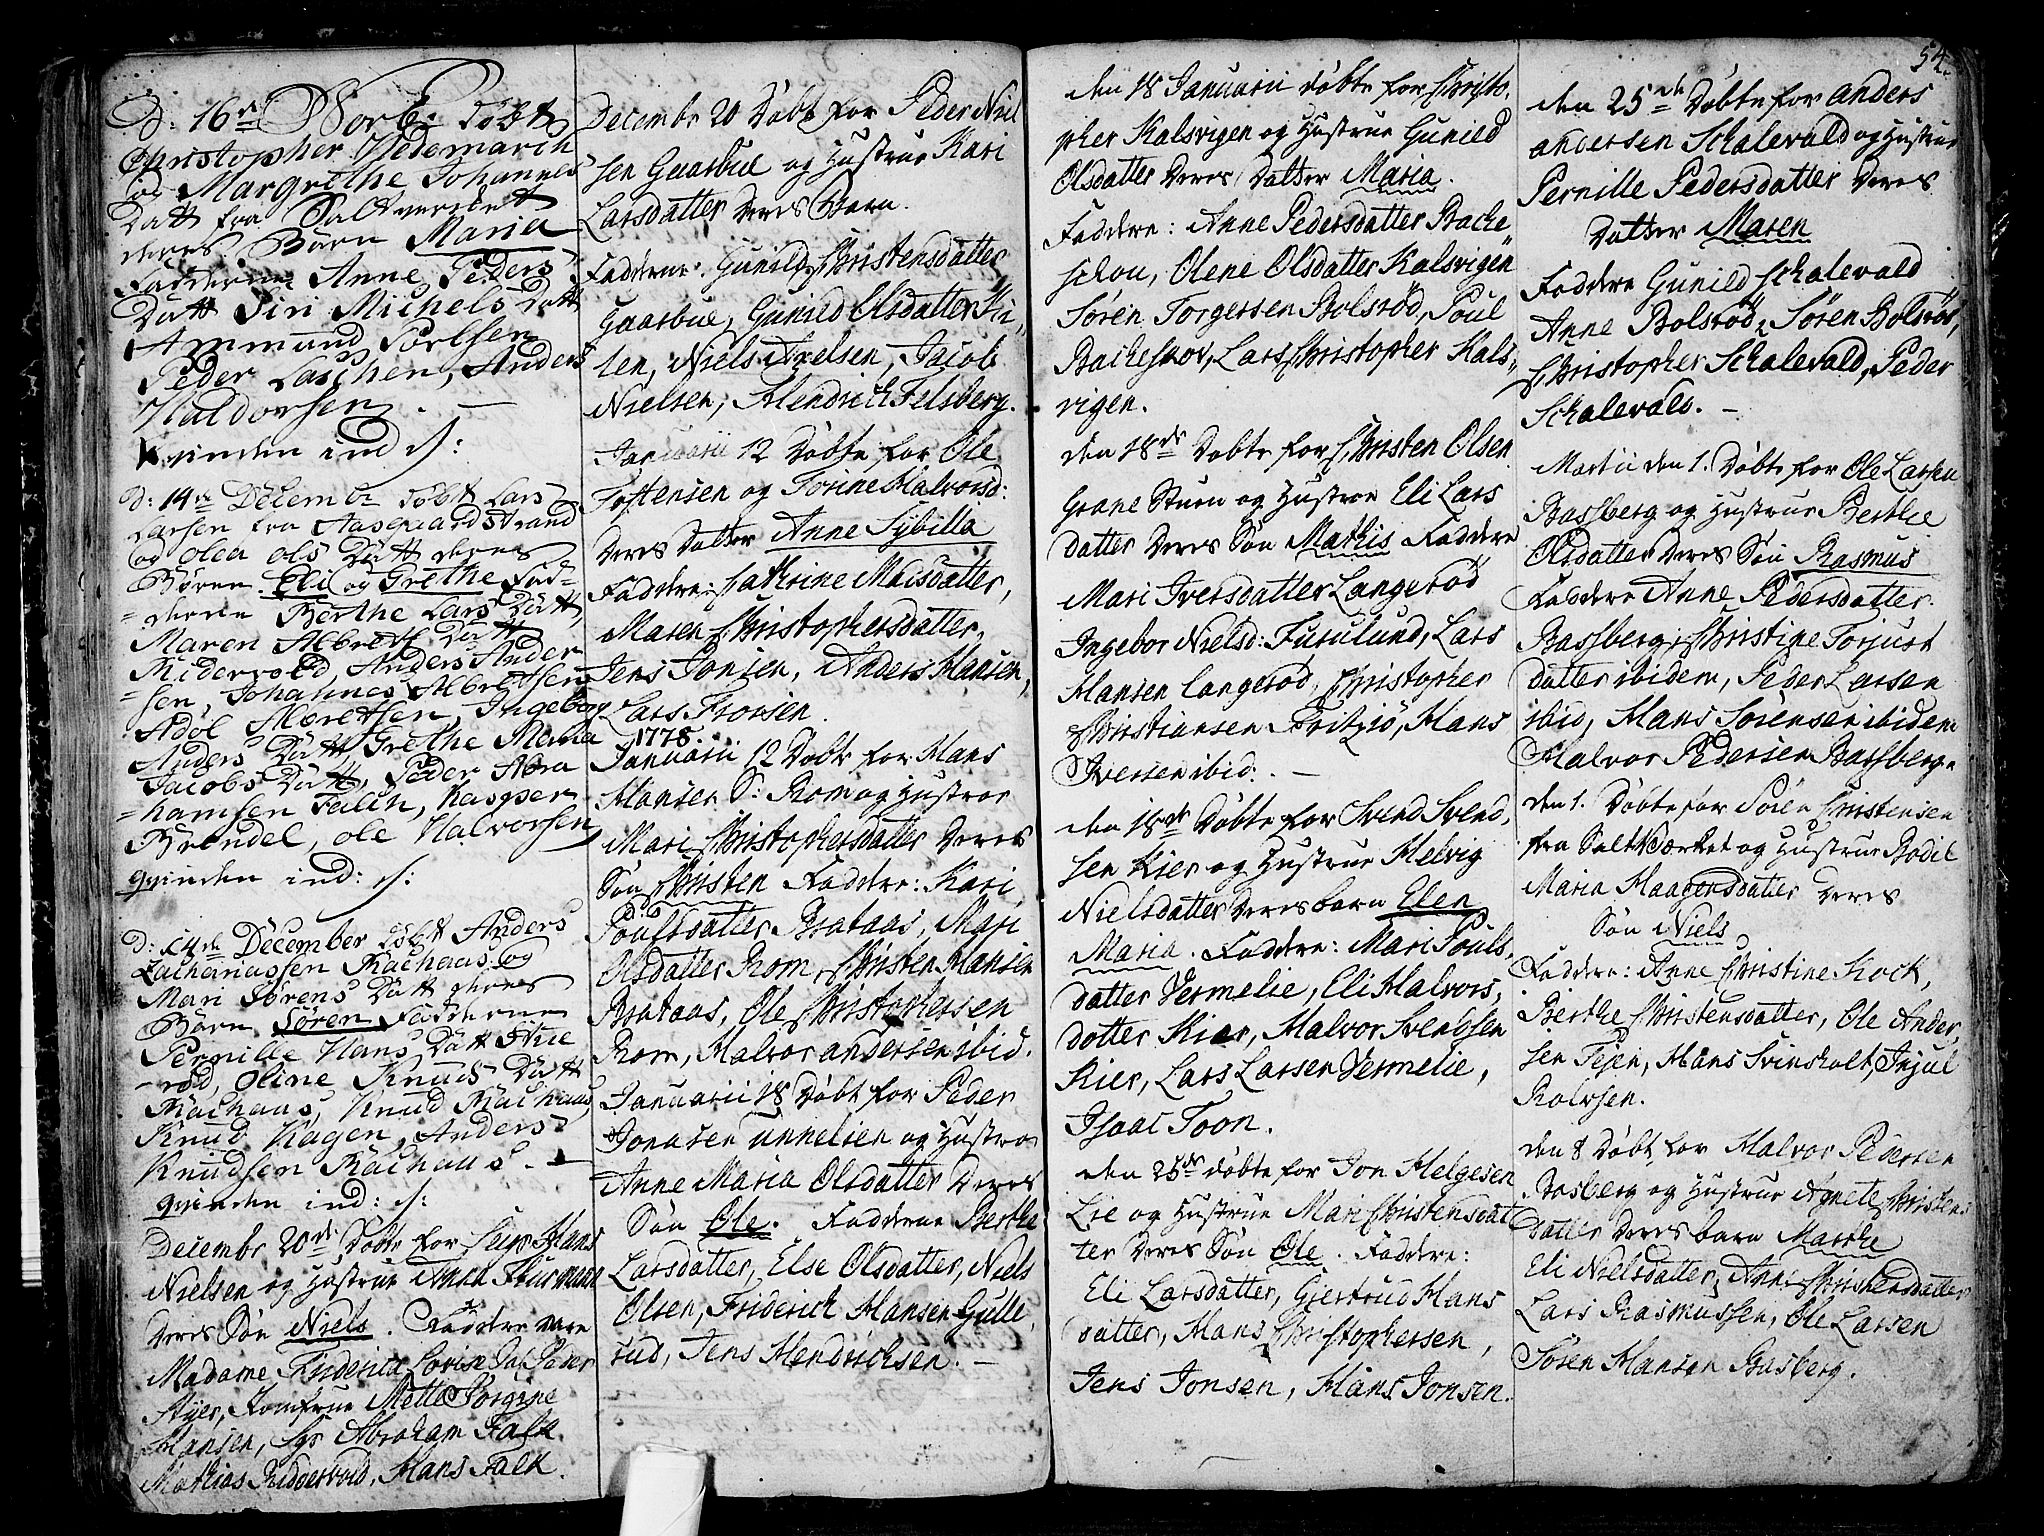 D: 16de Novbr døbt
Christopher Hedemarch
og Margrethe Johannes
Datt fra Saltverket
deres Børn Maria
Fadderne Anne Peders
Datt Siri Michels Datt
Ammund Poelsen
Peder Laschen, Anders
Haldorsen. —
Kvinden ind ://:
d: 14de Decembr døbt Lars
Larsen fra Aasgaardstrand
og Olea Ols Datt deres
Børn Eli og Grethe Fad-
derne Berthe Lars Datt,
Maren Albreth Datt
Ridervold, Anders Ander
sen, Johannes Albrethsen
Adol Albrethsen, Ingeborg
Anders Datt, Grethe Maria
Jacobs Datt, Peder Abra
hamsen Falch, Kasper
Brendel, Ole Halvorsen
qvinden ind: ://:
d: 14de December døbt Anders
Zachariassen Rachaas og
Mari Sørens Datt deres
Børn Søren Fadderne
Pernille Hans Datt Stue
rød, Oline Knuds Datt
Rachaas, Knud Rachaas,
Knud Hagen, Anders
Knudsen Rachaas. —
qvinden ind: ://:
Decembr 20de Døbt for Seigr Hans
Nielsen og Hustrue Anna Thurmann
Deres Søn Niels. Faddere vare
Madame Friderica Lovise Sal Peder
Ayer, Jomfrue Mette Jørgine
Hansen, Sgr Abraham Falk
Mathias Riddervold, Hans Falk.
Decembr 20 Døbt for Peder Niel
sen Gaarbue og Hustrue Kari
Larsdatter Deres Barn.
Fadderne. Gunild Christensdatter
Gaarbue, Gunild Olsdatter Ki
len, Niels Axelsen, Jacob
Nielsen, Hendrick Felsberg.
Januarii 12 Døbte for Ole
Toftensen og Torine Halvorsd:
Deres Datter Anne Sybilla
Faddere: Cathrine Maisdatter,
Maren Christophersdatter,
Jens Jonsen, Anders Hansen,
Lars Frorsen.
1778.
Januarii 12 Døbt for Hans
Hansen S: Rom og Hustroe
Mari Christophersdatter Deres
Søn Christen Faddere: Kari
Poulsdatter Brataas, Mari
Olsdatter Rom, Christen Hansen
Brataas, Ole Christophersen
Rom, Halvor andersen ibid.
Januarii 18 Døbt for Peder
Jonasen Unnelsen og Hustroe
Anne Maria Olsdatter Deres
Søn Ole. Fadderne Berthe
Larsdatter, Else Olsdatter, Niels
Olsen, Friderich Hansen Gulle
rud, Jens Hendrichsen. —
den 18 Januarii døbte for Christo
pher Kalsvigen og Hustrue Gunild
Olsdatter Deres Datter Maria.
Faddere: Anne Pedersdatter Bache
schou, Olene Olsdatter Kalsvigen
Søren Torgersen Bolsrød, Poul
Bacheskov, Lars Christopher Kals-
vigen.
den 18de Døbte for Christen Olsen
Grane Stuen og Hustroe Eli Lars
datter Deres Søn Mathis Faddere
Mari Iversdatter Langerød
Ingebor Nielsd: Furulund, Lars
Hansen Langerød, Christopher
Christiansen Fritzjö, Hans
Iversen ibid:. —
den 18de Døbte for Svend Svend
sen Kier og Hustrue Helvig
Nielsdatter Deres barn Elen
Maria. Faddere: Mari Pouls
datter Vermelie, Eli Halvors,
datter Kier, Halvor Svendsen
Kier, Lars Larsen Vermelie,
Isaac Toon.
den 25de døbte for Jon Helgesen
Lie og Hustrue Mari Christensdat
ter Deres Søn Ole. Faddere:
Eli Larsdatter, Giertrud Hans
datter, Hans Christophersen,
Jens Jonsen, Hans Jonsen.
54.
den 25de Døbte for anders
andersen Schalevald og Hustrue
Pernille Pedersdatter Deres
Datter Maren
Faddere Gunild Schalevald
Anne Bolsrød, Søren Bolsrød,
Christopher Schalevald, Peder
Schalevald. —
Martii den 1. Døbte for Ole Larsen
Bassberg og Hustrue Berthe
Olsdatter Deres Søn Rasmus
Faddere Anne Pedersdatter
Bassberg, Christine Torjust
datter ibidem, Peder Larsen
ibid, Hans Sørensen ibidem
Halvor Pedersen Bassberg.
den 1. Døbte for Sören Christensen
fra Salt Værket og Hustrue Bodil
Maria Haagensdatter Deres
Søn Niels
Faddere: Anne Christine Kock,
Berthe Christensdatter, Ole Ander
sen Teien, Hans Svinholt, Injul
Rolvsen.
den 8 Døbt for Halvor Pedersen
Basberg og Hustrue Agnete Christens
Datter Deres barn Marthe
Eli Nielsdatter, Anne Christensdatter
Lars Rasmussen, Ole Larsen
Søren Hansen Basberg.